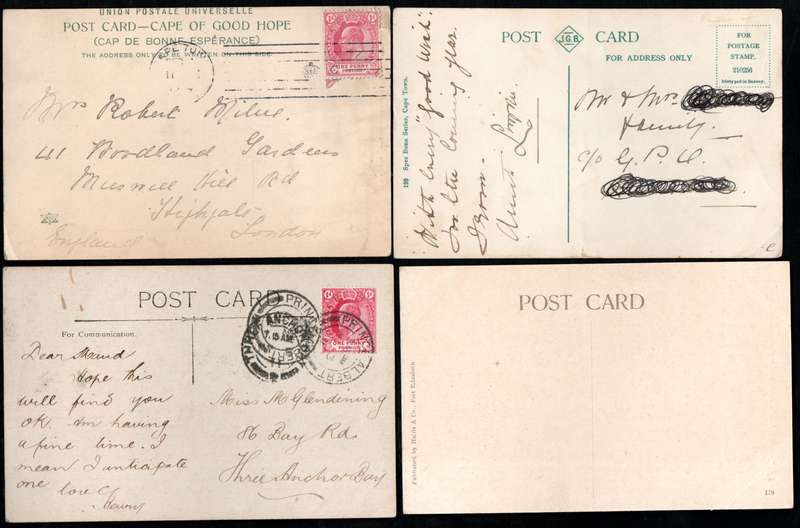 UNION POSTALE UNIVERSELLE
POST CARD—CAPE OF GOOD HOPE
(CAP DE BONNE ESPÉRANCE)
THE ADDRESS ONLY TO BE WRITTEN ON THIS SIDE
ONE PENNY
Mrs Robert Milne.
41 Woodland Gardens
Muswell Hill Rd
Highgate
London
England
POST CARD
J.G.B.
FOR ADDRESS ONLY
FOR
POSTAGE
STAMP.
210256
139 Spes Bona Series, Cape Town.
"With every "good Wish"
for the coming year.
from
Aunt
Mr & Mrs
Family.
c/o G.P.O.
POST CARD
For Communication.
Dear Maud
Hope this
will find you
OK. Am having
a fine time. I
mean I anticipate
one love
PRINCE ALBERT
7.15 AM
ONE PENNY
Miss McGlendening
86 Bay Rd
Three Anchor Bay
POST CARD
Published by Hallis & Co., Port Elizabeth
179